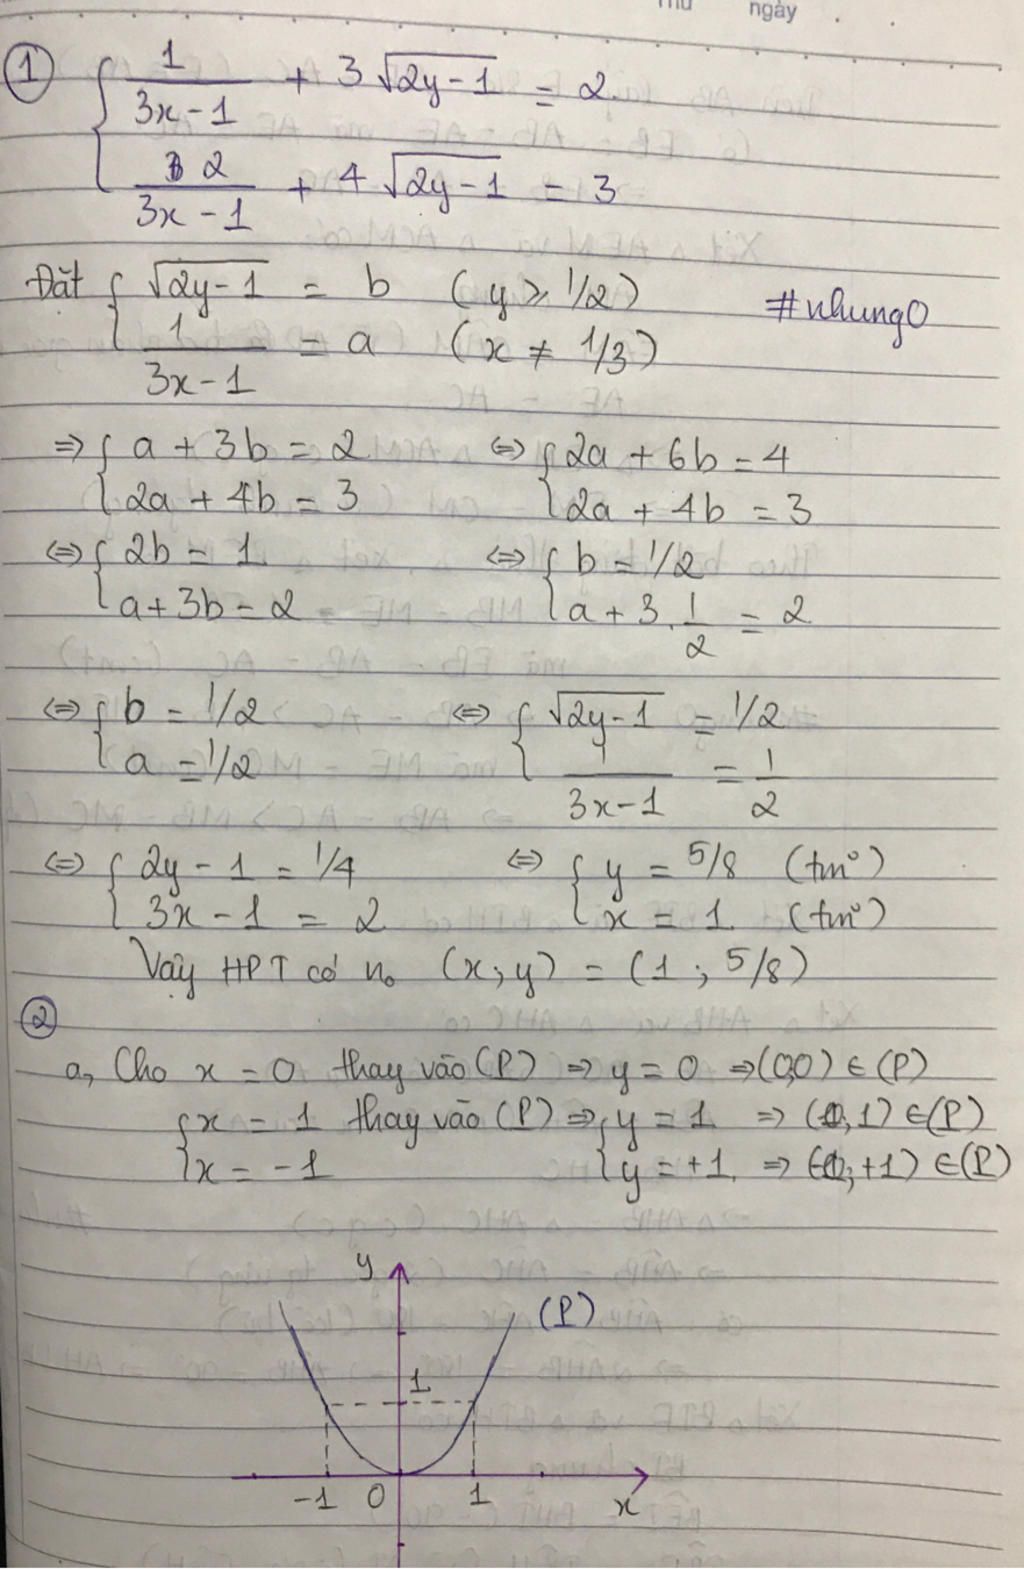 Thứ ngày
① { 1/(3x-1) + 3√(2y-1) = 2
2/(3x-1) + 4√(2y-1) = 3
Đặt { √(2y-1) = b (y ≥ 1/2)
1/(3x-1) = a (x ≠ 1/3)
#nhung0
⇒ { a + 3b = 2 ⇔ { 2a + 6b = 4
2a + 4b = 3 2a + 4b = 3
⇔ { 2b = 1 ⇔ { b = 1/2
a + 3b = 2 a + 3.1/2 = 2
⇔ { b = 1/2 ⇔ { √(2y-1) = 1/2
a = 1/2 1/(3x-1) = 1/2
⇔ { 2y - 1 = 1/4 ⇔ { y = 5/8 (tm°)
3x - 1 = 2 x = 1 (tm°)
Vậy HPT có n₀ (x;y) = (1; 5/8)
②
a, Cho x = 0 thay vào (P) ⇒ y = 0 ⇒ (0,0) ∈ (P)
{ x = 1 thay vào (P) ⇒ { y = 1 ⇒ (1,1) ∈ (P)
x = -1 y = +1 ⇒ (-1; +1) ∈ (P)
y
(P)
1
-1 0 1 x